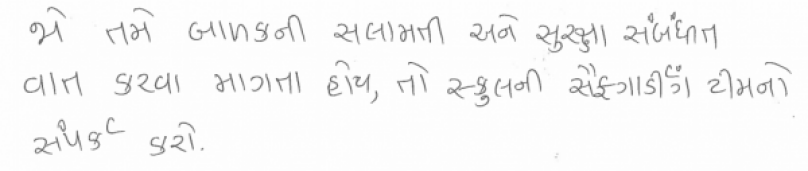 જો તમે બાળકની સલામતી અને સુરક્ષા સંબંધીત
વાત કરવા માગતા હોય, તો સ્કુલની સૈફગાર્ડીંગ ટીમનો
સંપર્ક કરો.